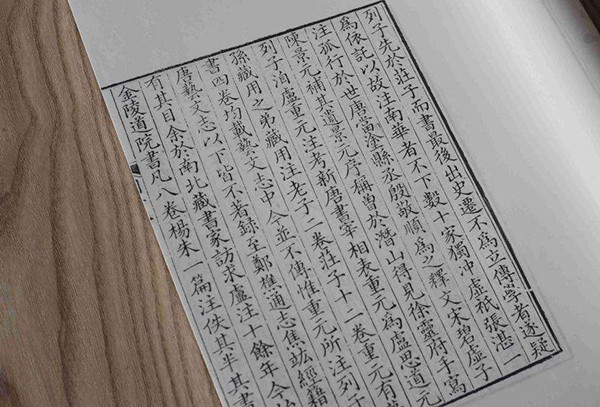 列子先於莊子而書最後出史遷不為立傳學者遂疑
為依託以故注南華者不下數十家獨沖虛祇張湛一
注孤行於世唐當塗縣丞殷敬順為之釋文宋碧虛子
陳景元補其遺景元序稱曾於潛山得見徐靈府手寫
列子洎盧重元注考新唐書宰相表重元為盧思道元
孫藏用之弟藏用注老子二卷莊子十二卷重元有
書四卷均載藝文志中今並不傳惟重元所注列子
唐藝文志以下皆不著錄至鄭樵通志焦竑經籍
有其目余於南北藏書家訪求盧注十餘年今
金陵道院書凡八卷楊朱一篇注佚其半其書